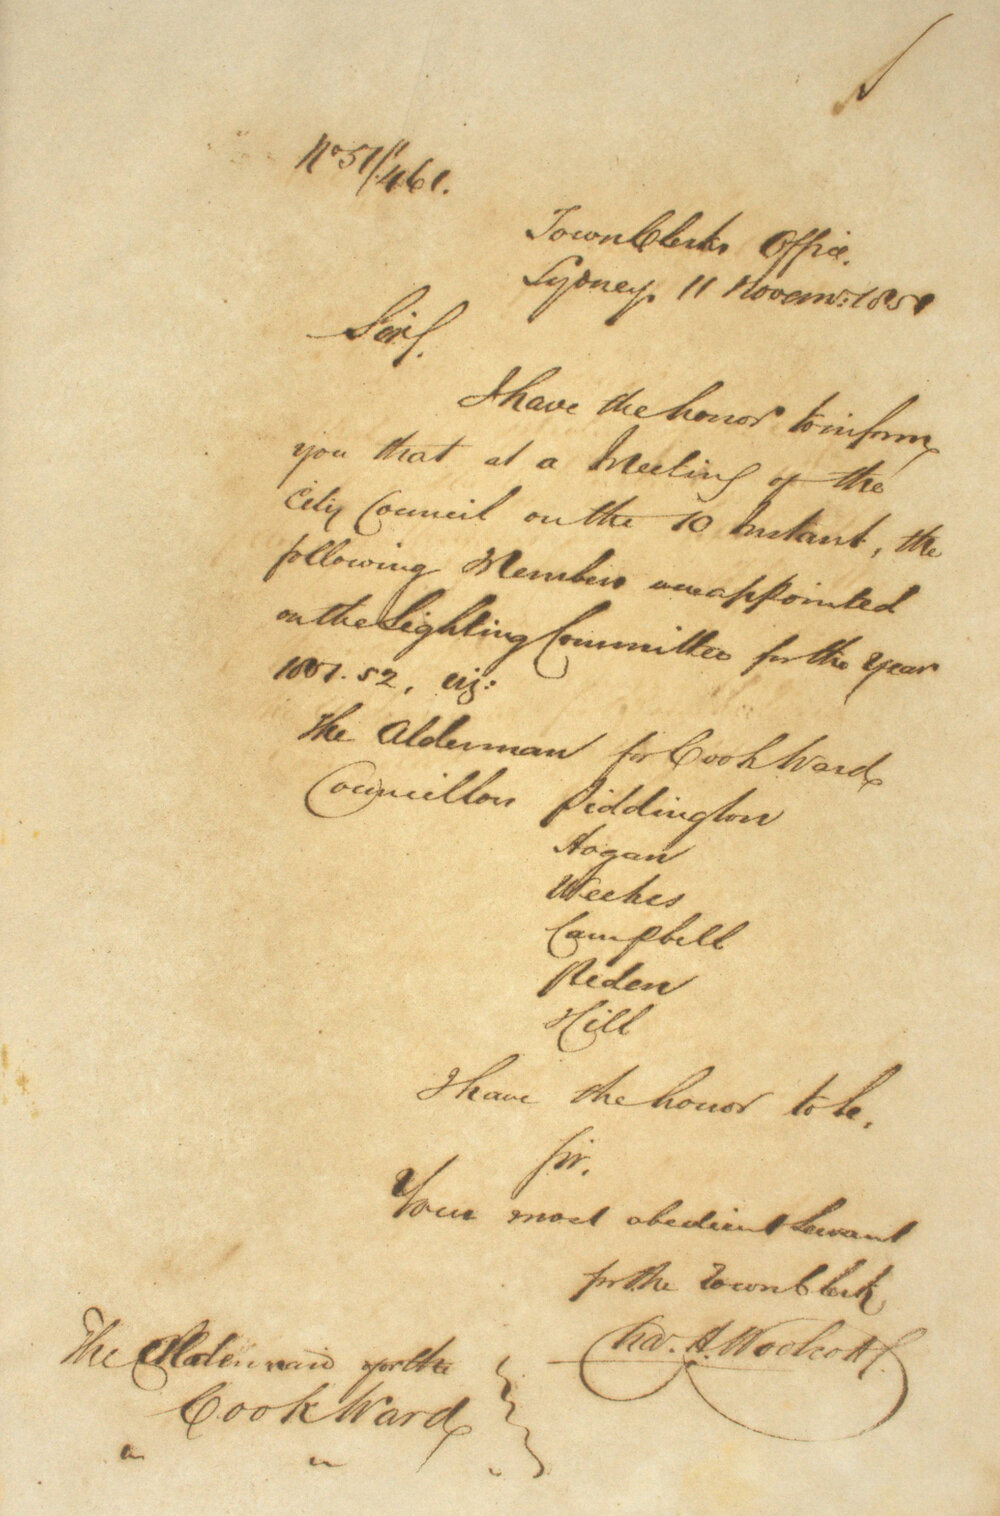 No 51/461.
Town Clerks Office.
Sydney, 11 Novemr: 1851
Sir,
I have the honor to inform
you that at a Meeting of the
City Council on the 10 Instant, the
following Members were appointed
on the Lighting Committee for the year
1851.52, viz:
The Alderman for Cook Ward
Councillors Piddington
Hogan
Weekes
Campbell
Peden
Hill
I have the honor to be,
Sir,
Your most obedient Servant
for the Town Clerk,
Chas. H. Woolcott
The Alderman for the
Cook Ward